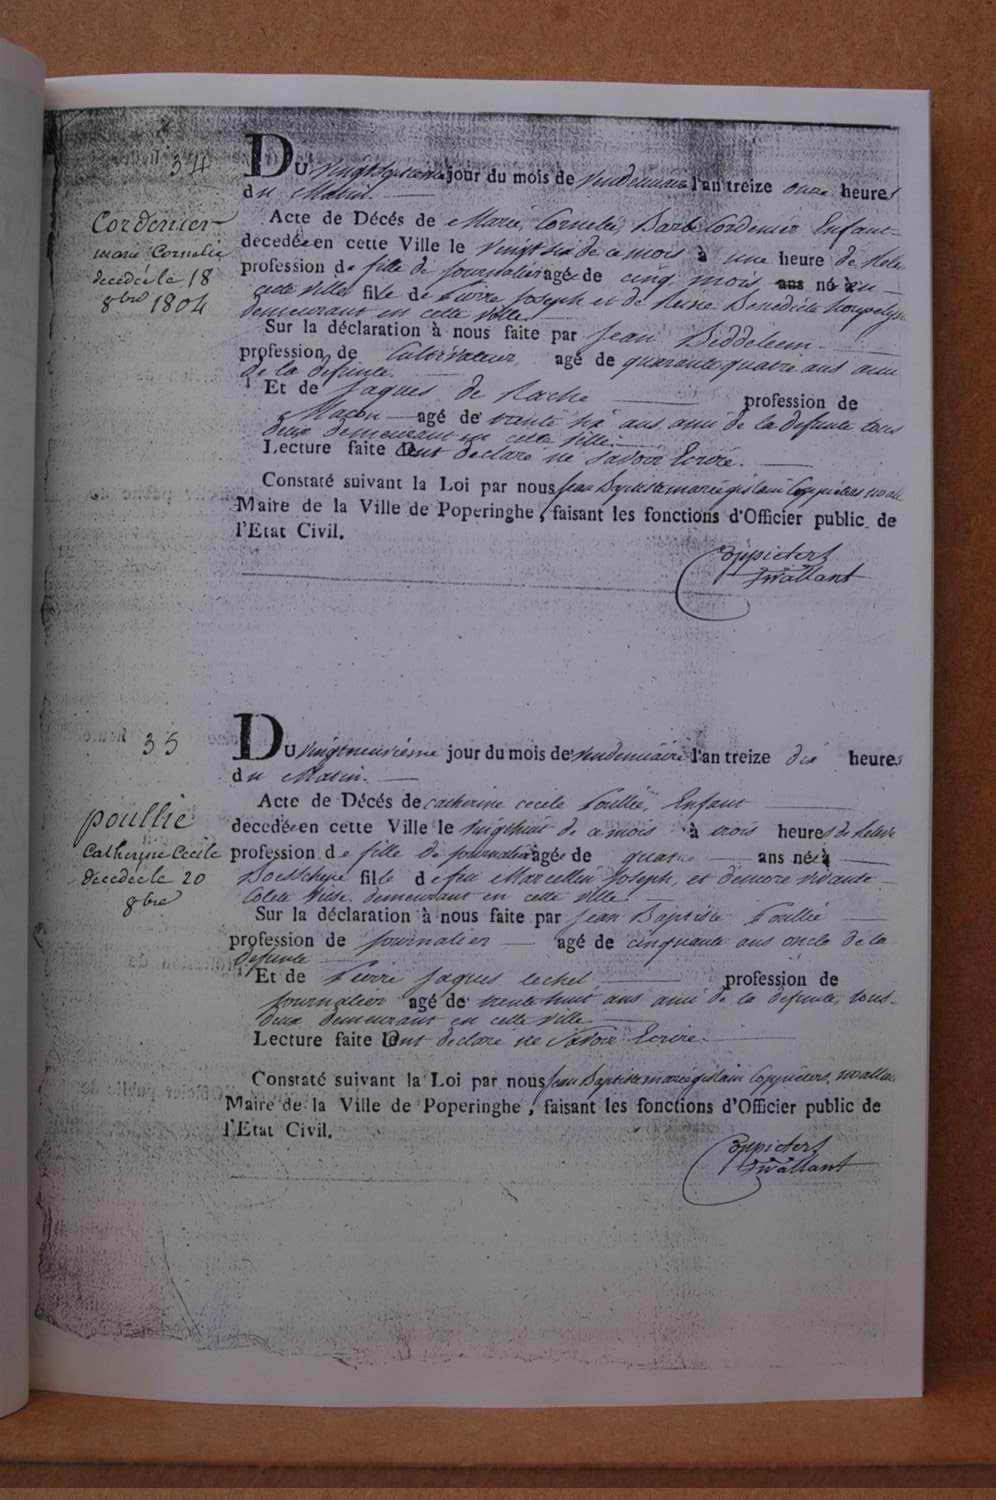 34
Cordenier
marie Cornelie
decedée le 18
8bre 1804
Du vingtseptieme jour du mois de Vendemiaire l'an treize onze heures
du Matin.
Acte de Décés de Marie, Cornelie, Barbe Cordenier Enfant
decedée en cette Ville le vingt six de ce mois à une heure de Relevé
profession de fille de journalier agé de cinq mois ans né en
cette ville fille de Pierre Joseph et de Reine Benedicte
demeurant en cette ville.
Sur la déclaration à nous faite par Jean Diddeleem
profession de Cultivateur, agé de quarante quatre ans ami
de la defunte.
Et de Jaques de Rache profession de
Macon agé de trente six ans ami de la defunte tous
deux demeurant en cette ville.
Lecture faite ont declaré ne Savoir Ecrire.
Constaté suivant la Loi par nous Jean Baptiste marie gislain Coppieters, walla
Maire de la Ville de Poperinghe, faisant les fonctions d'Officier public de
l'Etat Civil.
Coppieters
Twallant
35
poullie
Catherine Cecile
decedée le 20
8bre
Du vingtneuvième jour du mois de vendemiaire l'an treize dix heures
du Matin.
Acte de Décés de catherine cecile Poullie, Enfant
decedée en cette Ville le vingthuit de ce mois à trois heures de Relevé
profession de fille de journalier agée de quatre ans née à
Boesschepe fille de feu Marcellin Joseph, et demere vivante
Colete demeurant en cette ville.
Sur la déclaration à nous faite par Jean Baptiste Poullié
profession de journalier agé de cinquante ans oncle de la
defunte
Et de Pierre Jaques Lechel, profession de
journalier agé de trente huit ans ami de la defunte, tous
deux demeurant en cette ville
Lecture faite ont declaré ne Savoir Ecrire.
Constaté suivant la Loi par nous Jean Baptiste marie gislain Coppieters, walla
Maire de la Ville de Poperinghe, faisant les fonctions d'Officier public de
l'Etat Civil.
Coppieters
Twallant